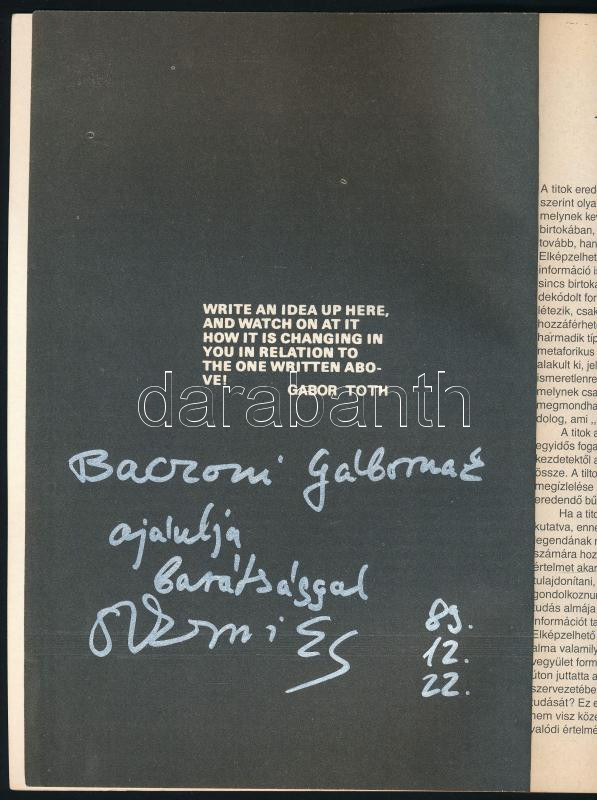 WRITE AN IDEA UP HERE,
AND WATCH ON AT IT
HOW IT IS CHANGING IN
YOU IN RELATION TO
THE ONE WRITTEN ABO-
VE!
GABOR TOTH
darabanth
Baczoni Gábornak
ajánlja
barátsággal
89.
12.
22.
A titok ered
szerint olya
melynek ke
birtokában,
tovább, han
Elképzelhet
információ is
sincs birtoka
dekódolt for
létezik, csak
hozzáférhet
harmadik típ
metaforikus
alakult ki, jel
ismeretlenre
melynek csa
megmondha
dolog, ami „
A titok a
egyidős foga
kezdetektől a
össze. A tilto
megízlelése
eredendő bű
Ha a tito
kutatva, enne
legendának r
számára hoz
értelmet akar
tulajdonítani,
gondolkoznun
tudás almája
információt ta
Elképzelhető
alma valamily
vegyület form
úton juttatta a
szervezetébe
tudását? Ez e
nem visz köze
valódi értelmé